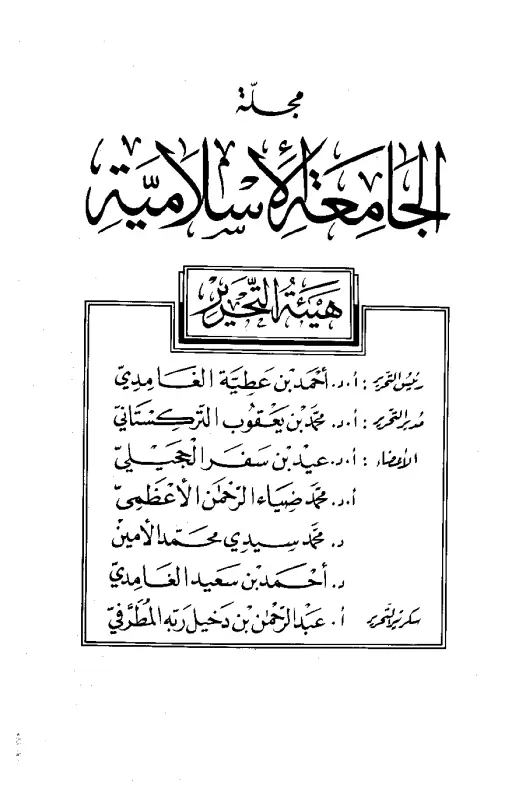 مجلة
الجامعة الإسلامية
هيئة التحرير
رئيس التحرير : أ.د. أحمد بن عطية الغامدي
مدير التحرير : أ.د. محمد بن يعقوب التركستاني
الأعضاء : أ.د. عيد بن سفر الحجيلي
أ.د. محمد ضياء الرحمن الأعظمي
د. محمد سيدي محمد الأمين
د. أحمد بن سعيد الغامدي
سكرتير التحرير أ. عبد الرحمن بن دخيل ربه المطرفي